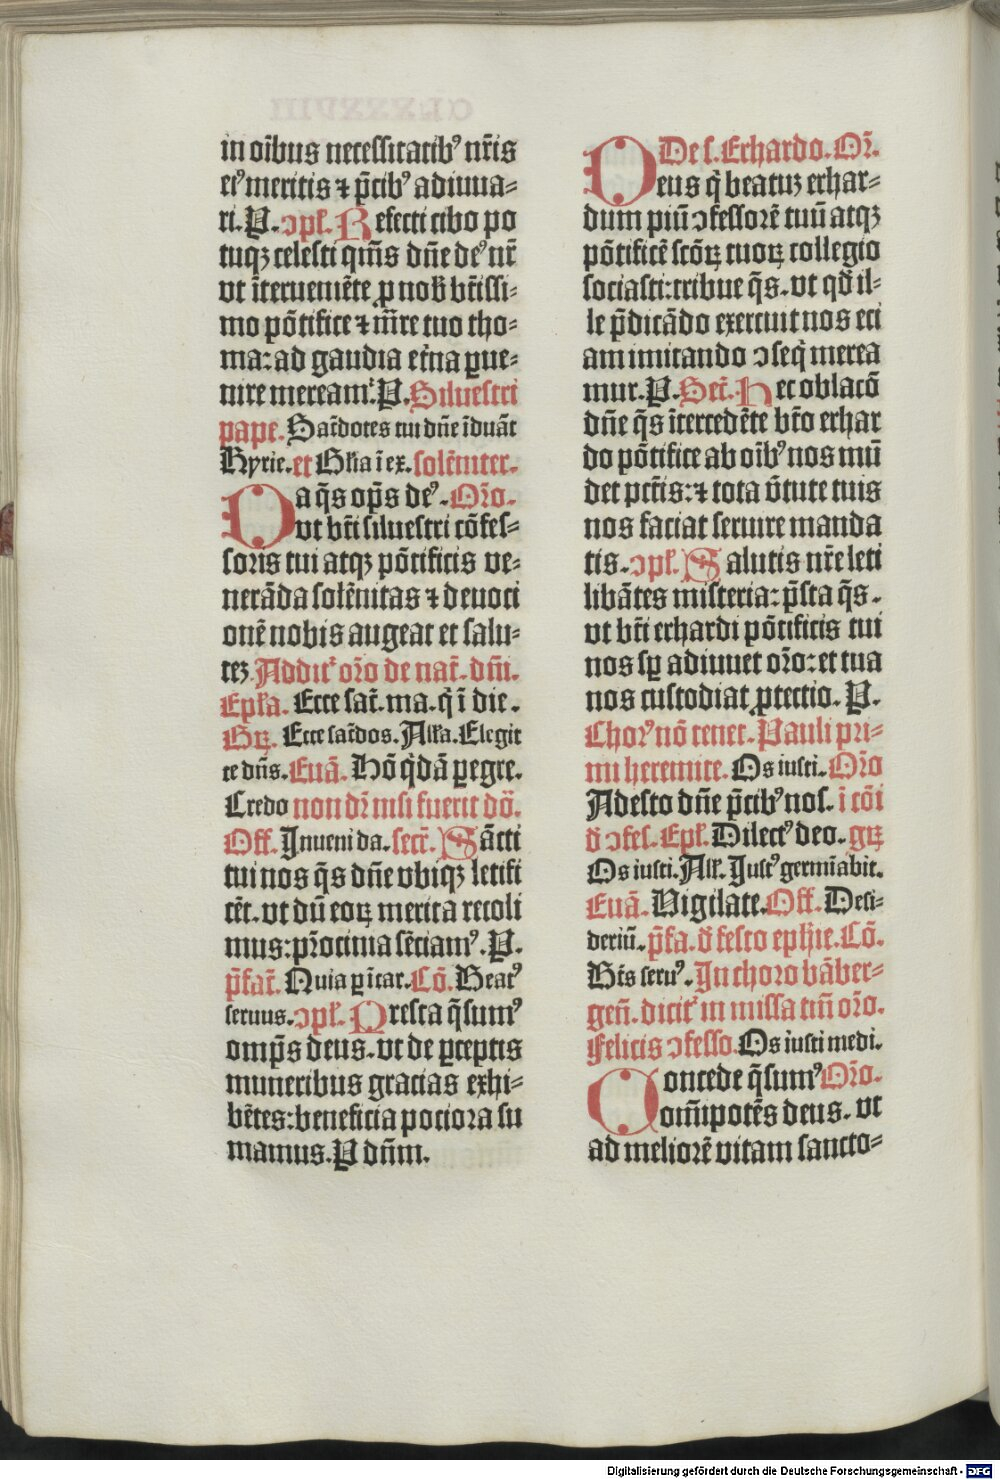 in oībus necessitatibꝰ nr̄is
eiꝰ meritis ⁊ p̄cibꝰ adiuua⸗
ri. P. ↄpl̄. Refecti cibo po
tuqꝫ celesti qm̄s dn̄e deꝰ nr̄
vt īterueniēte ꝓ nob̄ btīssi⸗
mo pōtifice ⁊ mr̄e tuo tho⸗
ma: ad gaudia etn̄a ꝑue⸗
nire meream᷑. P. Siluestri
pape. Sac̄dotes tui dn̄e īduāt
Kyrie. et Gl̄ia ī ex. solēniter.
Da q̄s op̄s deꝰ. Orō.
vt bt̄i siluestri cōfes⸗
soris tui atqꝫ pōtificis ve⸗
nerāda solēnitas ⁊ deuoci
onē nobis augeat et salu⸗
tez. Addit᷑ orō de nat̄. dn̄i.
Ep̄la. Ecce sac̄. ma. q̄ ī die.
Gꝝ. Ecce sac̄dos. All̄a. Elegit
te dn̄s. Euā. Hō q̄dā ꝑegre.
Credo non dr̄ nisi fuerit dō.
Off. Inueni da. secr̄. Sācti
tui nos q̄s dn̄e vbiqꝫ letifi
cēt. vt dū eoꝝ merita recoli
mus: pr̄ocinia sēciamꝰ. P.
p̄fat̄. Quia ꝑ īcar. Cō. Beatꝰ
seruus. ↄpl̄. Presta q̄sumꝰ
omp̄s deus. vt de ꝑceptis
muneribus gracias exhi⸗
bētes: beneficia pociora su
mamus. P dn̄m.
De s. Erhardo. Or̄.
Deus q̄ beatuꝫ erhar⸗
dum piū ↄfessorē tuū atqꝫ
pōtificē scōꝝ tuoꝝ collegio
sociasti: tribue q̄s. vt qd̄ il⸗
le p̄dicādo exercuit nos eci
am imitando ↄseq̄ merea
mur. P. Secr̄. Hec oblacō
dn̄e q̄s ītercedēte bt̄o erhar
do pōtifice ab oībꝰ nos mū
det pctīs: ⁊ tota v̄tute tuis
nos faciat seruire manda
tis. ↄpl̄. Salutis nr̄e leti
libātes misteria: p̄sta q̄s.
vt bt̄i erhardi pōtificis tui
nos sꝑ adiuuet orō: et tua
nos custodiat ꝓtectio. P.
Chorꝰ nō tenet. Pauli pri⸗
mi heremite. Os iusti. Orō
Adesto dn̄e p̄cibꝰ nos. ī cōi
d̄ ↄfes. Ep̄l. Dilectꝰ deo. gꝝ
Os iusti. All̄. Justꝰ germīabit.
Euā. Vigilate. Off. Desi⸗
deriū. p̄fa. d̄ festo eph̄ie. Cō.
Bt̄s seruꝰ. In choro bāber⸗
geñ. dicit᷑ in missa tm̄ orō.
Felicis ↄfesso. Os iusti medi.
Concede q̄sumꝰ Orō.
om̄ipotēs deus. vt
ad meliorē vitam sancto⸗
Digitalisierung gefördert durch die Deutsche Forschungsgemeinschaft - DFG